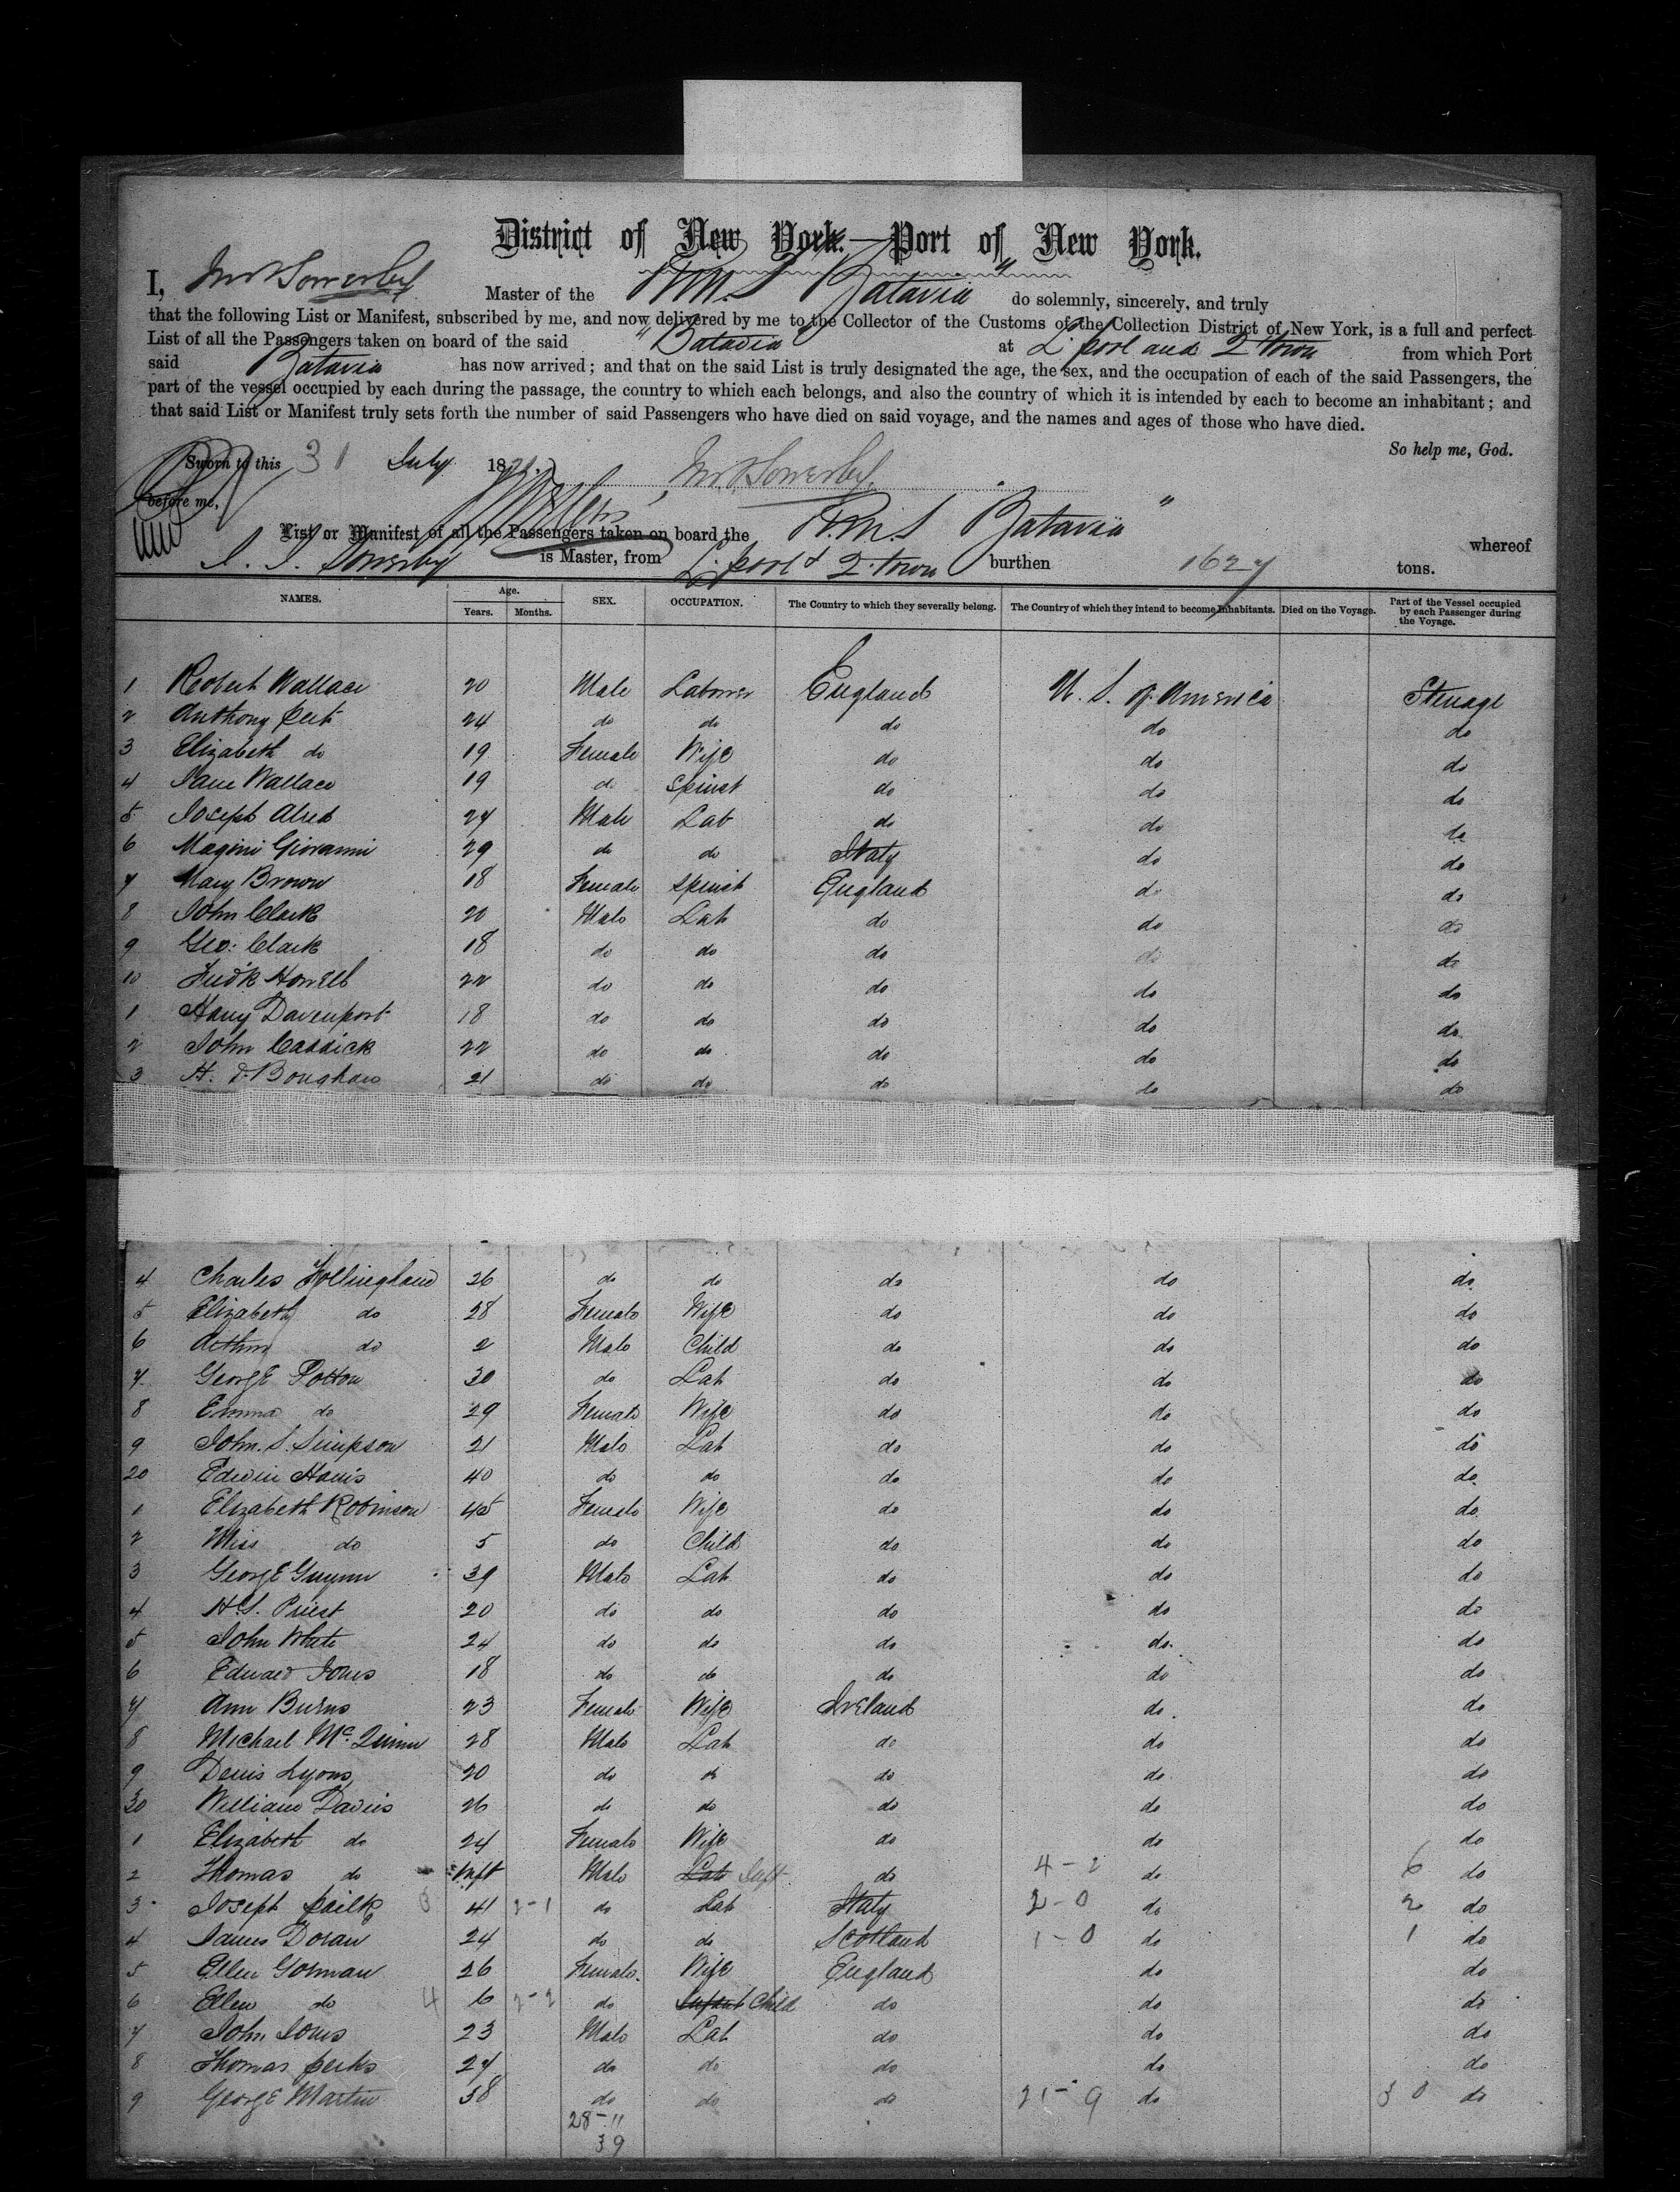 District of New York.—Port of New York.
I, Master of the R.M.S "Batavia" do solemnly, sincerely, and truly
that the following List or Manifest, subscribed by me, and now delivered by me to the Collector of the Customs of the Collection District of New York, is a full and perfect
List of all the Passengers taken on board of the said "Batavia at L'pool and Q'town from which Port
said Batavia has now arrived; and that on the said List is truly designated the age, the sex, and the occupation of each of the said Passengers, the
part of the vessel occupied by each during the passage, the country to which each belongs, and also the country of which it is intended by each to become an inhabitant; and
that said List or Manifest truly sets forth the number of said Passengers who have died on said voyage, and the names and ages of those who have died.
So help me, God.
Sworn to this 31 July 18
before me,
List or Manifest of all the Passengers taken on board the R.M.S Batavia" whereof
Sowerby is Master, from L'pool & Q'town burthen 1627 tons.
NAMES. Age. Years. Months. SEX. OCCUPATION. The Country to which they severally belong. The Country of which they intend to become Inhabitants. Died on the Voyage. Part of the Vessel occupied by each Passenger during the Voyage.
1 Robert Wallace 20 Male Laborer England U. S. of America Steerage
2 Anthony 24 do do do do do
3 Elizabeth do 19 Female Wife do do do
4 Jane Wallace 19 do Spinst do do do
5 Joseph 24 Male Lab do do do
6 Magini Giovanni 29 do do Italy do do
7 Mary Brown 18 Female Spinst England do do
8 John Clark 20 Male Lab do do do
9 Geo: Clark 18 do do do do do
10 Fredk Howell 22 do do do do do
1 Harry Davenport 18 do do do do do
2 John Cassick 22 do do do do do
3 H. 21 do do do do do
4 Charles Hollingland 26 do do do do do
5 Elizabeth do 28 Female Wife do do do
6 Arthur do 2 Male Child do do do
7 George Potton 30 do Lab do do do
8 Emma do 29 Female Wife do do do
9 John. S. Simpson 21 Male Lab do do do
20 Edwin Harris 40 do do do do do
1 Elizabeth Robinson 45 Female Wife do do do
2 Miss do 5 do Child do do do
3 George Guynn 39 Male Lab do do do
4 H.S. Priest 20 do do do do do
5 John White 24 do do do do do
6 Edward Jones 18 do do do do do
7 Ann Burns 23 Female Wife Ireland do do
8 Michael Mc Quinn 28 Male Lab do do do
9 Denis Lyons 20 do do do do do
30 William Davis 26 do do do do do
1 Elizabeth do 24 Female Wife do do do
2 Thomas do Inft Male Lab Inft do 4-2 do 6 do
3 Joseph 3 41 2-1 do Lab Italy 2-0 do 2 do
4 James Doran 24 do do Scotland 1-0 do 1 do
5 Ellen Gorman 26 Female Wife England do do
6 Ellen do 4 6 2-2 do Infant Child do do do
7 John Jones 23 Male Lab do do do
8 Thomas Perks 27 do do do do do
9 George Martin 38 do do do 21-9 do 30 do
28-11
39